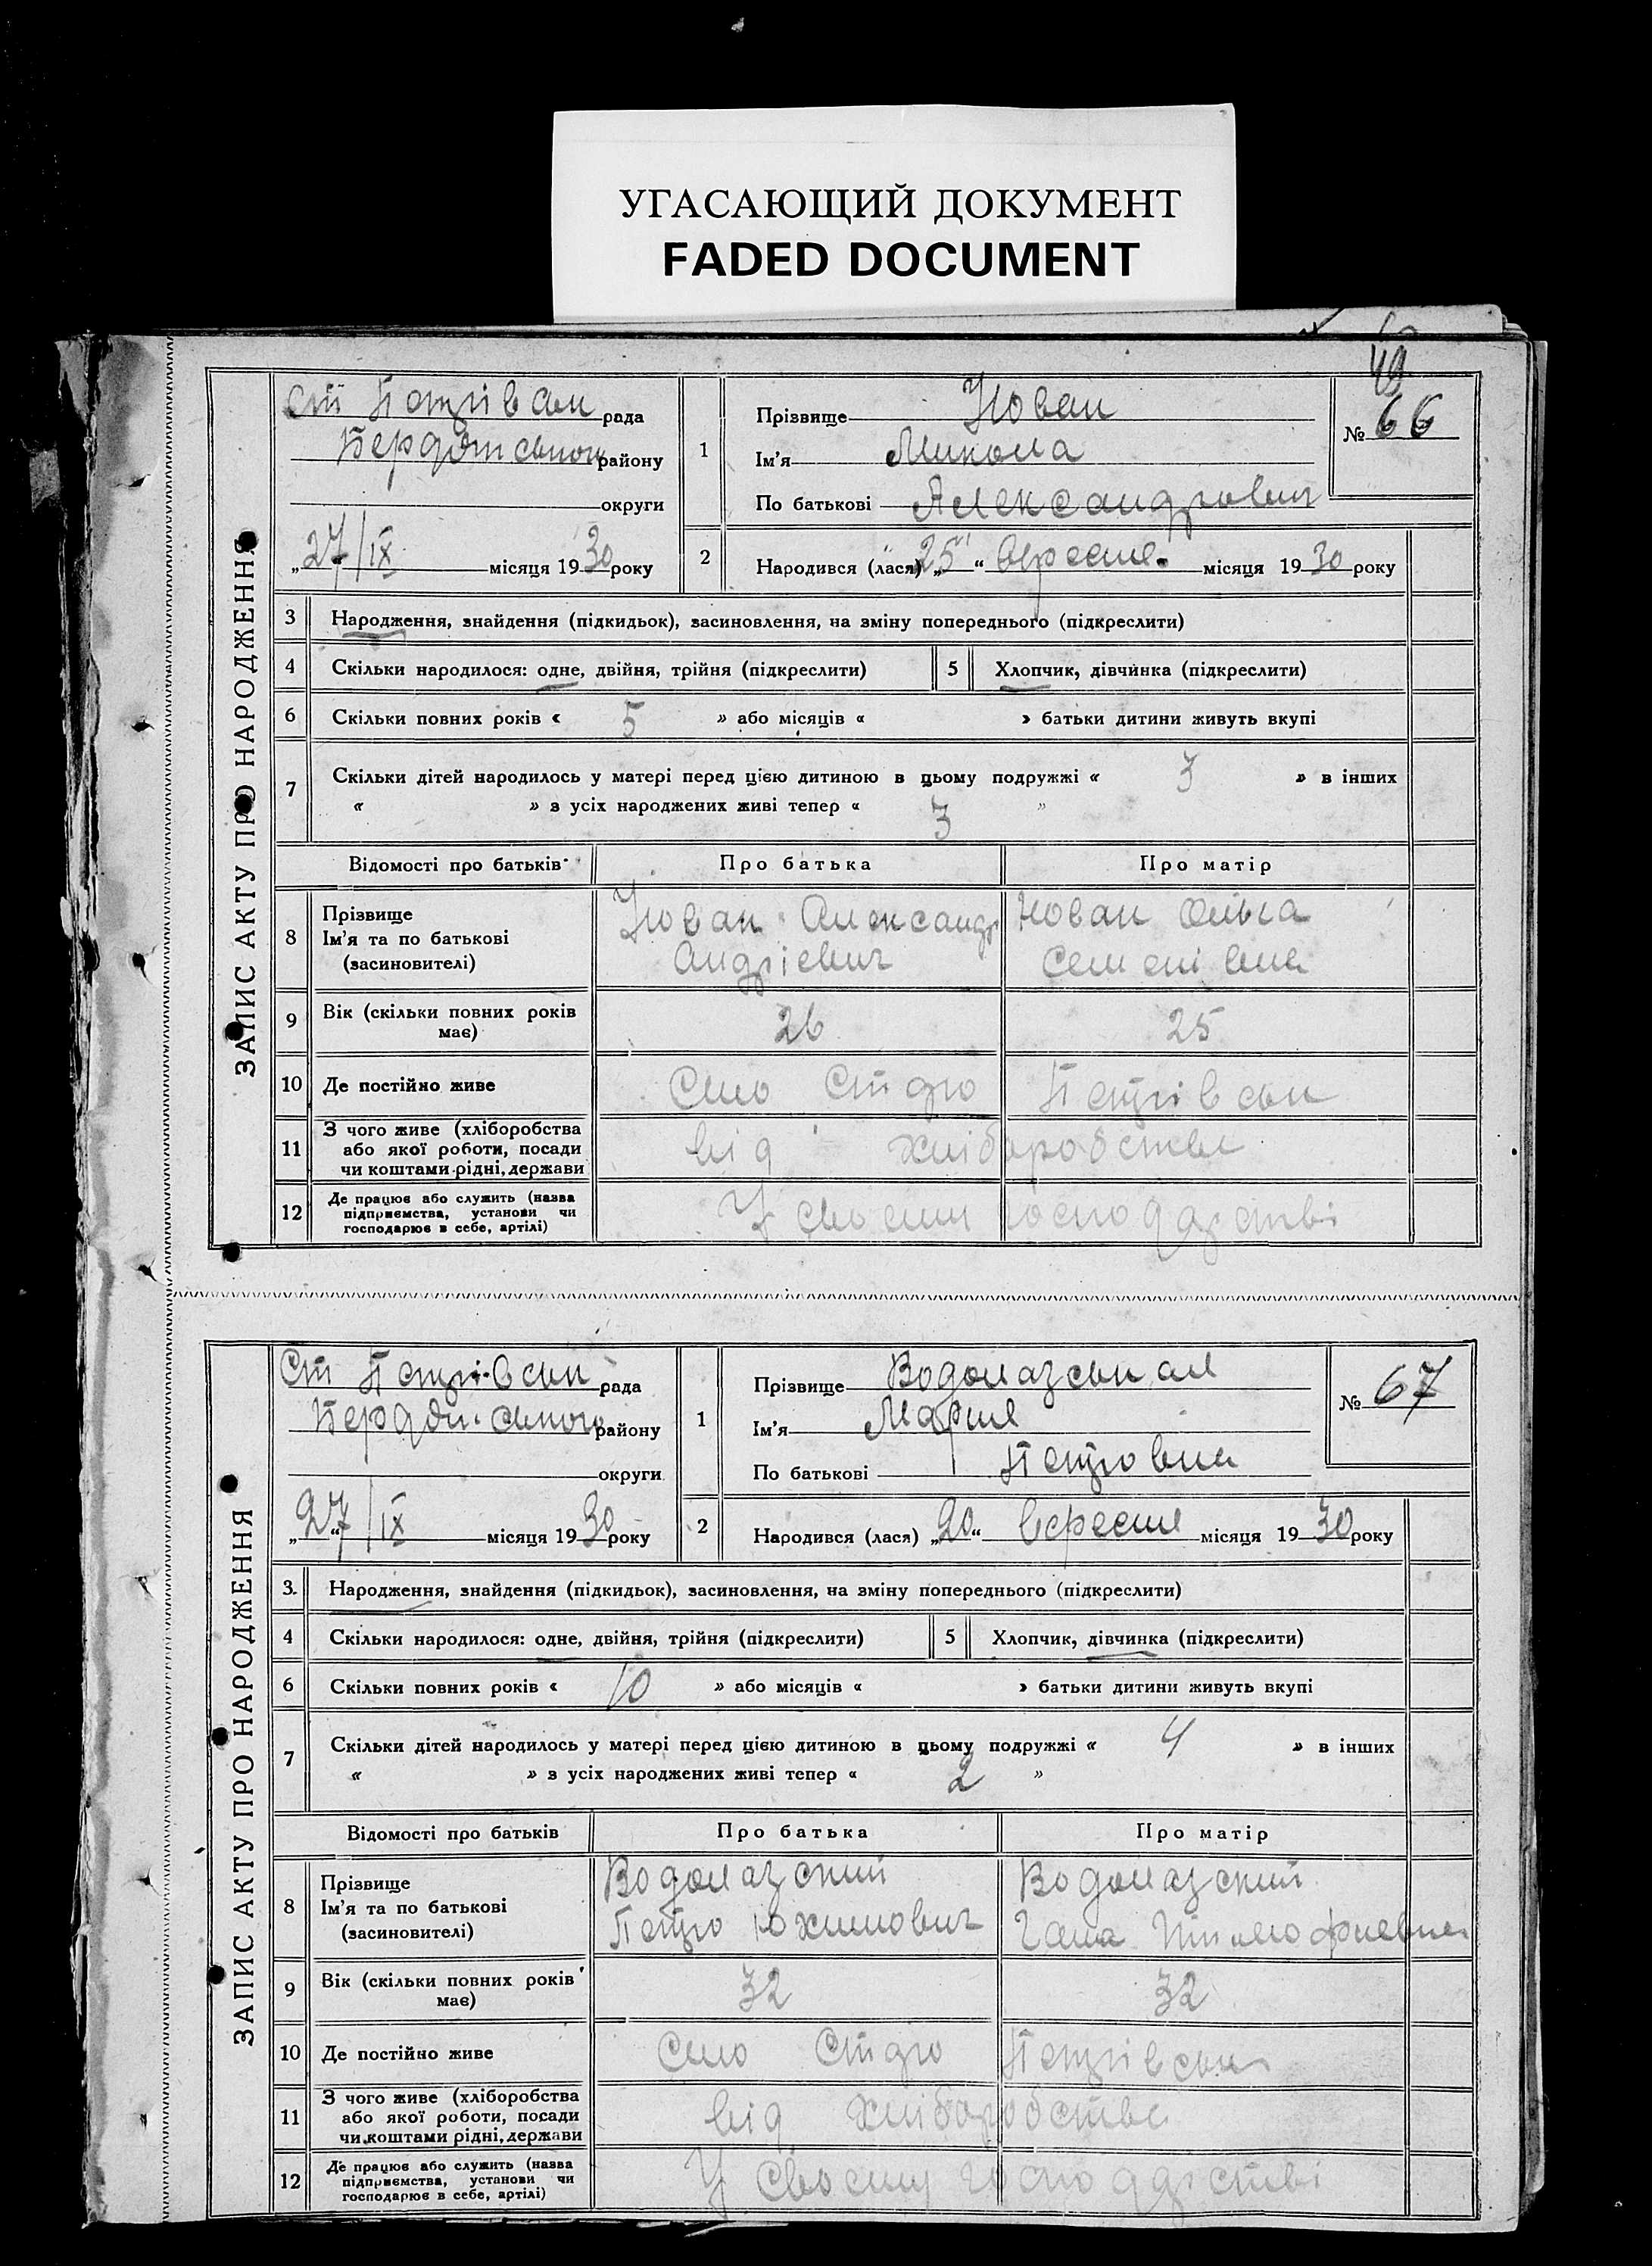 УГАСАЮЩИЙ ДОКУМЕНТ
FADED DOCUMENT
49
ЗАПИС АКТУ ПРО НАРОДЖЕННЯ
рада
району
округи
„27/IX місяця 1930 року
1
Прізвище
Ім'я Микола
По батькові Александрович
№ 66
2
Народився (лася) „25“ вересня місяця 1930 року
3 Народження, знайдення (підкидьок), засиновлення, на зміну попереднього (підкреслити)
4 Скільки народилося: одне, двійня, трійня (підкреслити)
5 Хлопчик, дівчинка (підкреслити)
6 Скільки повних років « 5 » або місяців « » батьки дитини живуть вкупі
7 Скільки дітей народилось у матері перед цією дитиною в цьому подружжі « 3 » в інших
« » з усіх народжених живі тепер « 3 »
Відомості про батьків
Про батька
Про матір
8 Прізвище
Ім'я та по батькові
(засиновителі)
Александр
Андрієвич
Ольга
Семенівна
9 Вік (скільки повних років
має)
26
25
10 Де постійно живе
Село Старо Петрівськ
11 З чого живе (хліборобства
або якої роботи, посади
чи коштами рідні, держави
від хліборобства
12 Де працює або служить (назва
підприємства, установи чи
господарює в себе, артілі)
У своєму господарстві
ЗАПИС АКТУ ПРО НАРОДЖЕННЯ
Ст Петрівськ рада
району
округи
„27“/IX місяця 1930 року
1
Прізвище Водолазськая
Ім'я Мария
По батькові Петровна
№ 67
2
Народився (лася) „20“ вересня місяця 1930 року
3. Народження, знайдення (підкидьок), засиновлення, на зміну попереднього (підкреслити)
4 Скільки народилося: одне, двійня, трійня (підкреслити)
5 Хлопчик, дівчинка (підкреслити)
6 Скільки повних років « 10 » або місяців « » батьки дитини живуть вкупі
7 Скільки дітей народилось у матері перед цією дитиною в цьому подружжі « 4 » в інших
« » з усіх народжених живі тепер « 2 »
Відомості про батьків
Про батька
Про матір
8 Прізвище
Ім'я та по батькові
(засиновителі)
Водолазский
Петро Юхимович
Водолазский
9 Вік (скільки повних років
має)
32
32
10 Де постійно живе
Село Старо Петрівськ
11 З чого живе (хліборобства
або якої роботи, посади
чи коштами рідні, держави
від хліборобства
12 Де працює або служить (назва
підприємства, установи чи
господарює в себе, артілі)
У своєму господарстві